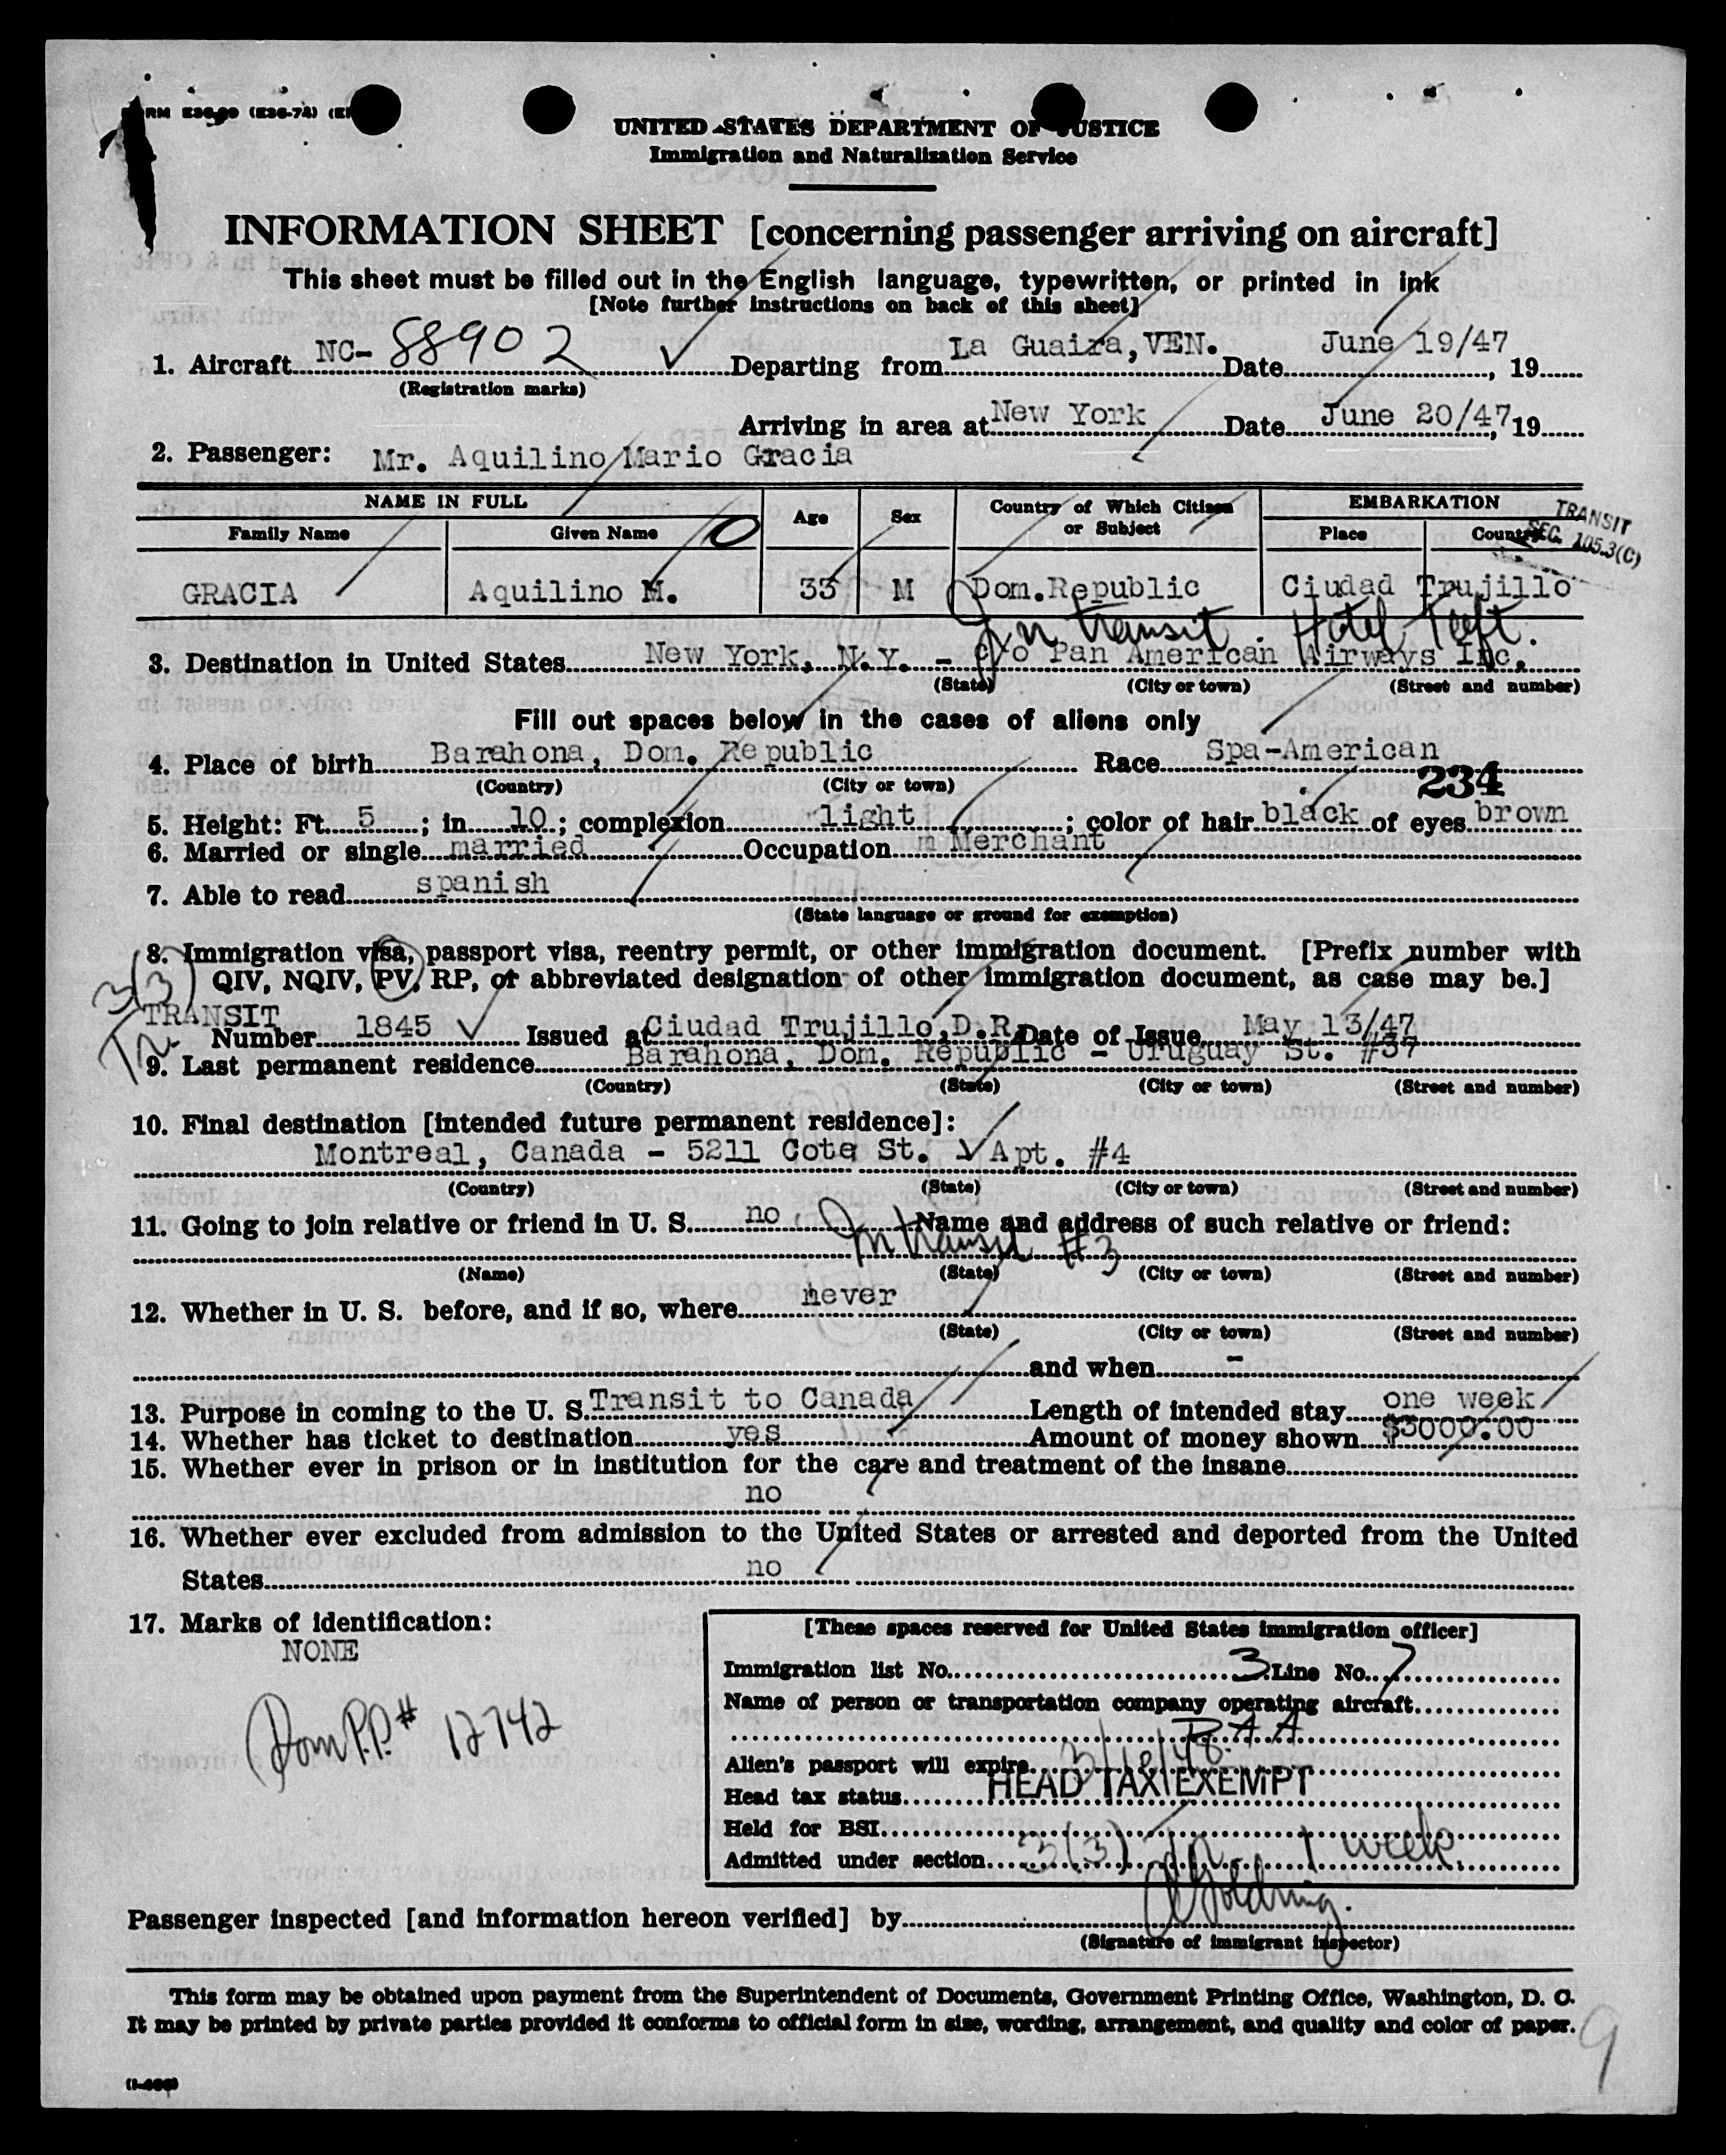 UNITED STATES DEPARTMENT OF JUSTICE
Immigration and Naturalization Service
INFORMATION SHEET [concerning passenger arriving on aircraft]
This sheet must be filled out in the English language, typewritten, or printed in ink
[Note further instructions on back of this sheet]
1. Aircraft NC- 88902 Departing from La Guaira, VEN. Date June 19/47, 19
(Registration marks)
Arriving in area at New York Date June 20/47, 19
2. Passenger: Mr. Aquilino Mario Gracia
NAME IN FULL Age Sex Country of Which Citizen or Subject EMBARKATION
Family Name Given Name Place Country
TRANSIT
SEC. 105.3(C)
GRACIA Aquilino M. 33 M Dom.Republic Ciudad Trujillo
In transit. Hotel Taft.
3. Destination in United States New York, N.Y. - c/o Pan American Airways Inc.
(State) (City or town) (Street and number)
Fill out spaces below in the cases of aliens only
4. Place of birth Barahona, Dom. Republic Race Spa-American
(Country) (City or town)
234
5. Height: Ft. 5; in. 10; complexion light; color of hair black of eyes brown
6. Married or single married Occupation m Merchant
7. Able to read spanish
(State language or ground for exemption)
8. Immigration visa, passport visa, reentry permit, or other immigration document. [Prefix number with
QIV, NQIV, PV, RP, or abbreviated designation of other immigration document, as case may be.]
3(3)
TRANSIT
Number 1845 Issued at Ciudad Trujillo, D.R. Date of Issue May 13/47
9. Last permanent residence Barahona, Dom. Republic - Uruguay St. #37
(Country) (State) (City or town) (Street and number)
10. Final destination [intended future permanent residence]:
Montreal, Canada - 5211 Cote St. Apt. #4
(Country) (State) (City or town) (Street and number)
11. Going to join relative or friend in U. S. no Name and address of such relative or friend:
In transit #3
(Name) (State) (City or town) (Street and number)
12. Whether in U. S. before, and if so, where never
(State) (City or town) (Street and number)
and when -
13. Purpose in coming to the U. S. Transit to Canada Length of intended stay one week
14. Whether has ticket to destination yes Amount of money shown $3000.00
15. Whether ever in prison or in institution for the care and treatment of the insane
no
16. Whether ever excluded from admission to the United States or arrested and deported from the United
States no
17. Marks of identification:
NONE
Dom P.P.# 12742
[These spaces reserved for United States immigration officer]
Immigration list No. 3 Line No. 7
Name of person or transportation company operating aircraft
P.A.A.
Alien's passport will expire 3/18/48
Head tax status HEAD TAX EXEMPT
Held for BSI
Admitted under section 3(3) 1 week.
Passenger inspected [and information hereon verified] by
(Signature of immigrant inspector)
This form may be obtained upon payment from the Superintendent of Documents, Government Printing Office, Washington, D. C.
It may be printed by private parties provided it conforms to official form in size, wording, arrangement, and quality and color of paper.
9